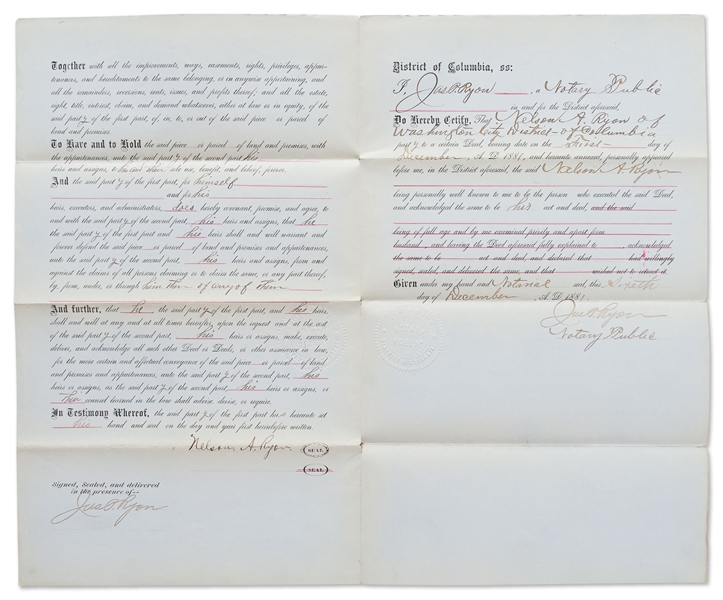 Together with all the improvements, ways, easements, rights, privileges, appur-
tenances, and hereditaments to the same belonging, or in anywise appertaining, and
all the remainders, reversions, rents, issues, and profits thereof; and all the estate,
right, title, interest, claim, and demand whatsoever, either at law or in equity, of the
said party of the first part, of, in, to, or out of the said piece or parcel of
land and premises.
To Have and to Hold the said piece or parcel of land and premises, with
the appurtenances, unto the said party of the second part his
heirs and assigns, to sole use, benefit, and behoof, forever.
And the said party of the first part, for himself
and for his
heirs, executors, and administrators does hereby covenant, promise, and agree, to
and with the said party of the second part, his heirs and assigns, that he
the said party of the first part and his heirs shall and will warrant and
forever defend the said piece or parcel of land and premises and appurtenances,
unto the said party of the second part, his heirs and assigns, from and
against the claims of all persons claiming or to claim the same, or any part thereof,
by, from, under, or through him them or any of them
And further, that he the said party of the first part, and his heirs,
shall and will at any and at all times hereafter, upon the request and at the cost
of the said party of the second part, his heirs or assigns, make, execute,
deliver, and acknowledge all such other Deed or Deeds, or other assurance in law,
for the more certain and effectual conveyance of the said piece or parcel of land
and premises and appurtenances, unto the said party of the second part, his
heirs or assigns, as the said party of the second part, his heirs or assigns, or
counsel learned in the law shall advise, devise, or require.
In Testimony Whereof, the said party of the first part has hereunto set
his hand and seal on the day and year first hereinbefore written.
Nelson A. Ryon SEAL
SEAL
Signed, Sealed, and delivered
in the presence of—
Jas. P. Ryon
District of Columbia, ss:
I, Jas. P. Ryon, a Notary Public
in and for the District aforesaid,
Do Hereby Certify, That Nelson A. Ryon of
Washington City District of Columbia
party to a certain Deed, bearing date on the First day of
December, A. D. 1881, and hereunto annexed, personally appeared
before me, in the District aforesaid, the said Nelson A. Ryon
being personally well known to me to be the person who executed the said Deed,
and acknowledged the same to be his act and deed, and the said
being of full age and by me examined privily and apart from
husband, and having the Deed aforesaid fully explained to acknowledged
the same to be act and deed, and declared that had willingly
signed, sealed, and delivered the same, and that wished not to retract it.
Given under my hand and Notarial seal, this Sixth
day of December A. D. 1881.
Jas. P. Ryon
Notary Public